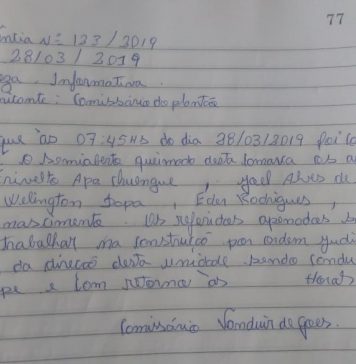 77
ntia Nº 123/2019
28/03/2019
Informativa.
: Comissário de plantão
que às 07:45Hs do dia 28/03/2019 foi
o Semiaberto queimado desta Comarca os
Apa , Joel Alves de
Welington Papa, Eder Rodrigues,
nascimento. Os referidos apenados
trabalhar na construção por ordem
da direcao desta unidade sendo condu
e com retorno as Horas
Comissário Vonduir de Goes.